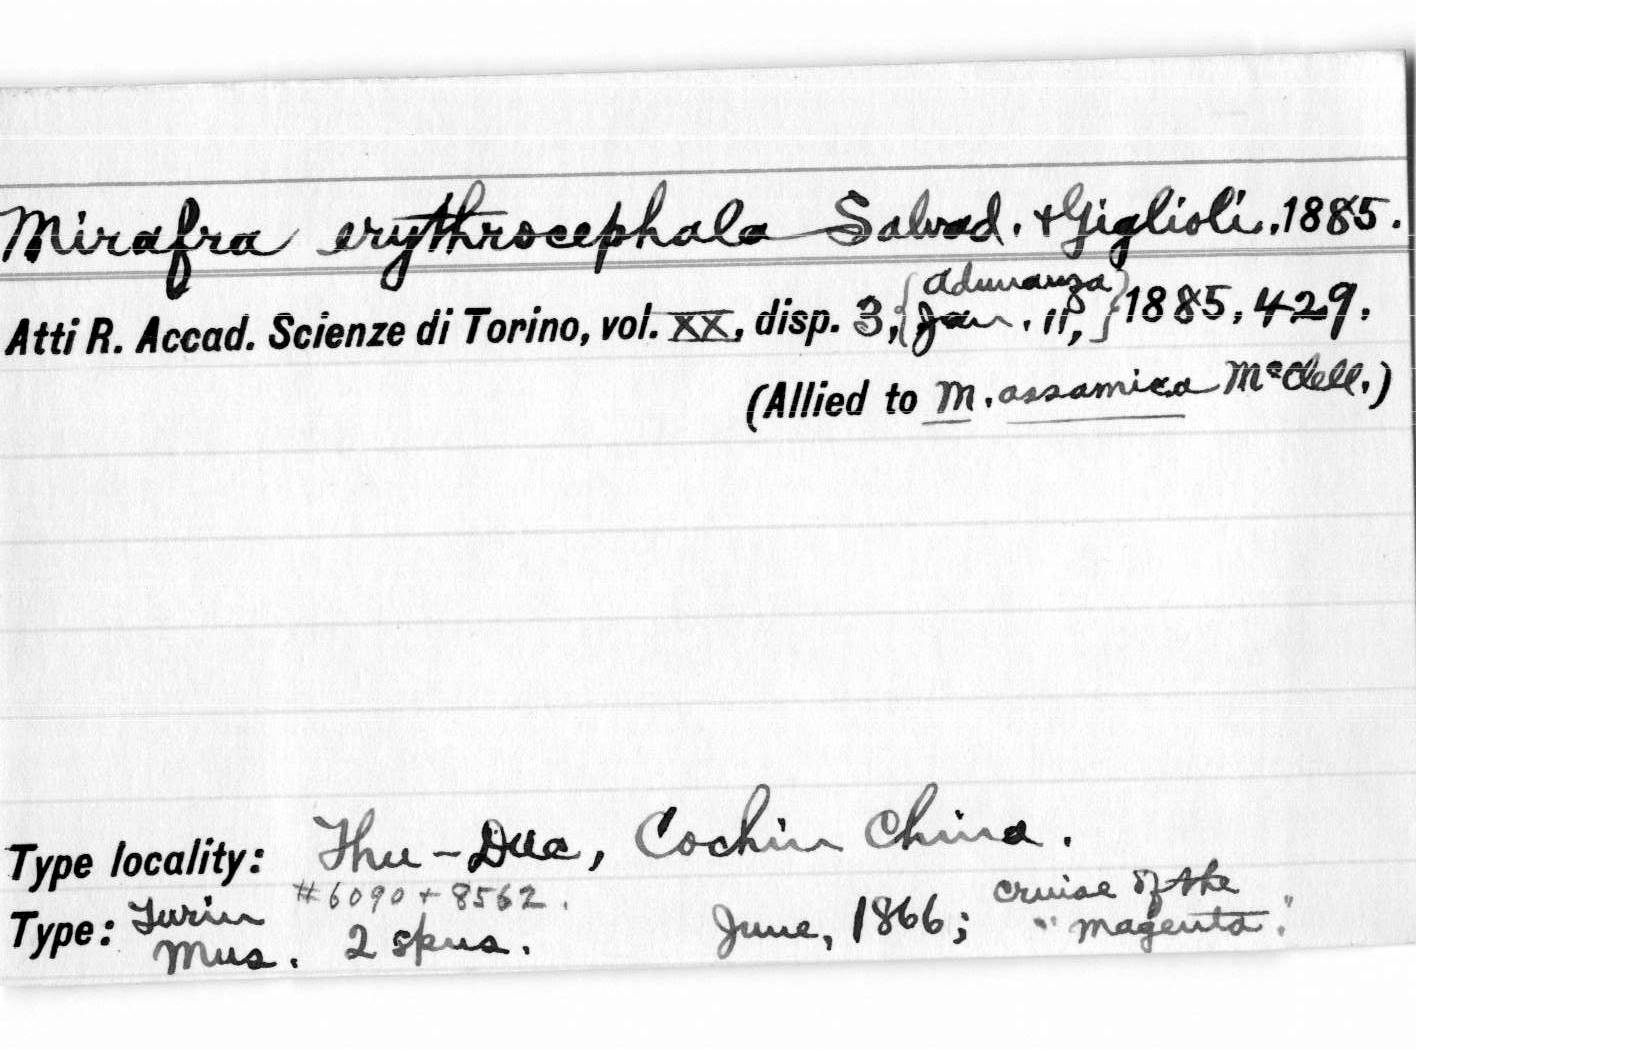 Mirafra erythrocephala Salvad. + Giglioli, 1885.
Atti R. Accad. Scienze di Torino, vol. XX, disp. 3, {Adunanza Jan. 11,} 1885, 429.
(Allied to M. assamica McClell.)
Type locality: Thu-Duc, Cochin China.
#6090 + 8562.
Type: Turin Mus. 2 spms. June, 1866; cruise of the "Magenta."